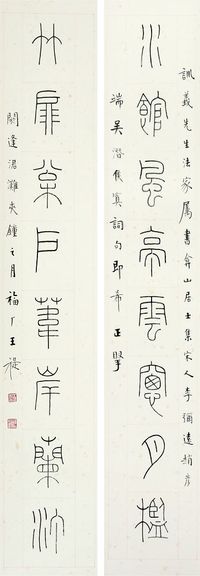 訓義先生法家屬書弇山居士集宋人李彌遜趙彥
水館風亭雲窗月檻
端吳潛侯寘詞句即希正
竹扉戶葦岸蘭汀
閼逢涒灘夾鐘之月福厂王禔